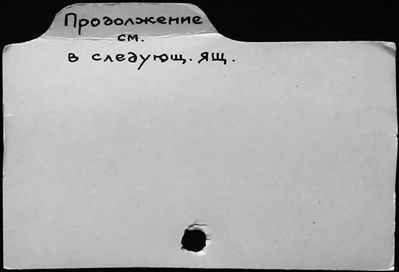 Продолжение
см.
в следующ. ящ.